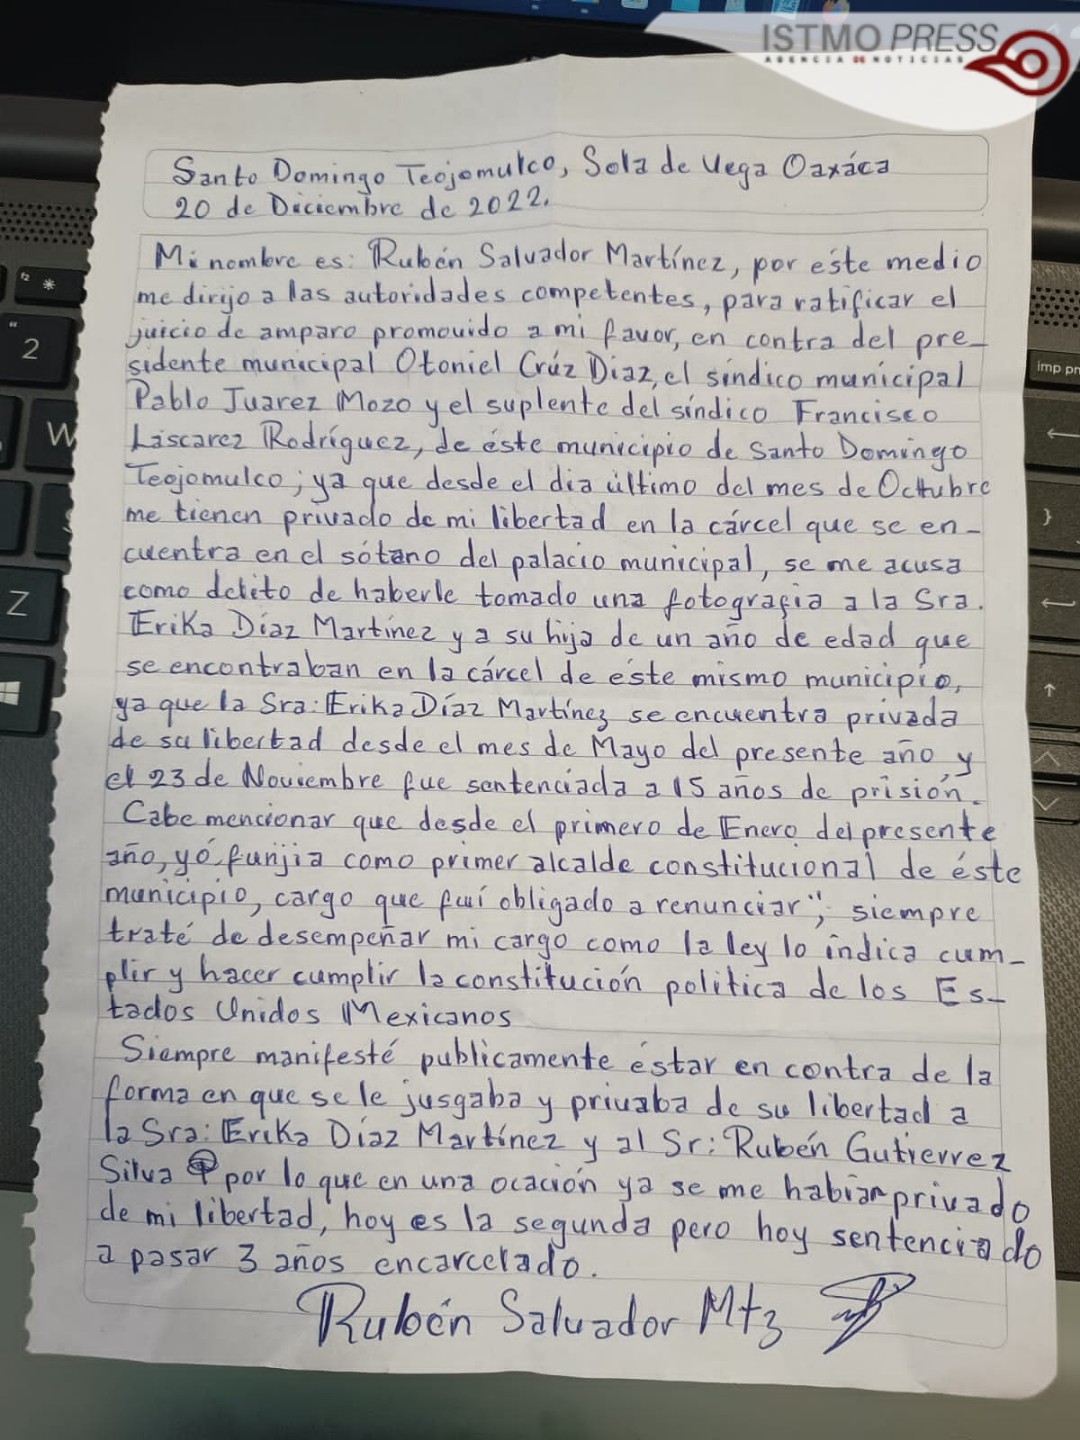 ISTMO PRESS
AGENCIA DE NOTICIAS
Santo Domingo Teojomulco, Sola de Vega Oaxáca
20 de Diciembre de 2022.
Mi nombre es: Rubén Salvador Martínez, por éste medio
me dirijo a las autoridades competentes, para ratificar el
juicio de amparo promovido a mi favor, en contra del pre-
sidente municipal Otoniel Crúz Díaz, el síndico municipal
Pablo Juarez Mozo y el suplente del síndico Francisco
Láscarez Rodríguez, de éste municipio de Santo Domingo
Teojomulco; ya que desde el dia último del mes de Octubre
me tienen privado de mi libertad en la cárcel que se en-
cuentra en el sótano del palacio municipal, se me acusa
como delito de haberle tomado una fotografia a la Sra.
Erika Díaz Martínez y a su hija de un año de edad que
se encontraban en la cárcel de éste mismo municipio,
ya que la Sra: Erika Díaz Martínez se encuentra privada
de su libertad desde el mes de Mayo del presente año y
el 23 de Noviembre fue sentenciada a 15 años de prisión.
Cabe mencionar que desde el primero de Enero del presente
año, yó funjia como primer alcalde constitucional de éste
municipio, cargo que fuí obligado a renunciar", siempre
traté de desempeñar mi cargo como la ley lo indica cum-
plir y hacer cumplir la constitución politica de los Es-
tados Unidos Mexicanos
Siempre manifesté publicamente éstar en contra de la
forma en que se le jusgaba y privaba de su libertad a
la Sra: Erika Díaz Martínez y al Sr: Rubén Gutierrez
Silva por lo que en una ocación ya se me habian privado
de mi libertad, hoy es la segunda pero hoy sentenciado
a pasar 3 años encarcelado.
Rubén Salvador Mtz
2
W
Z
imp pn